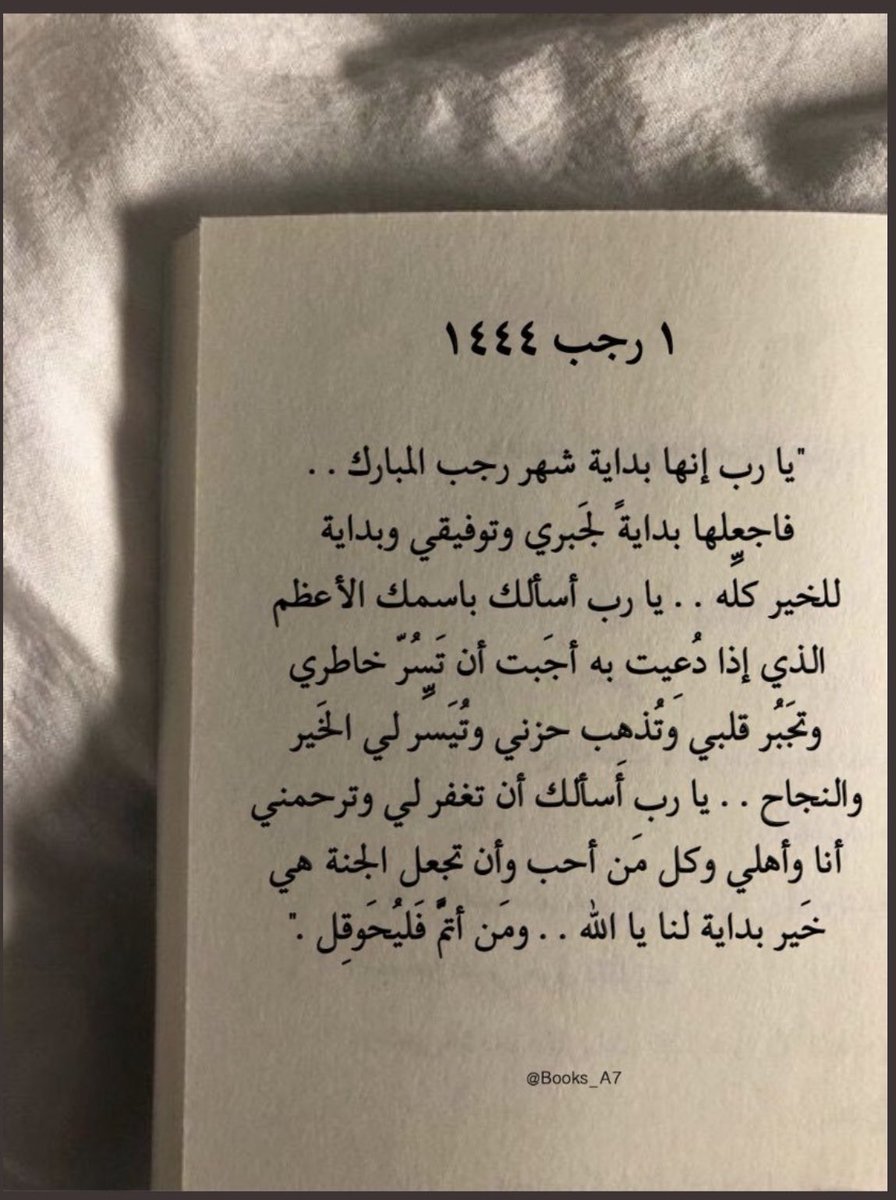 ١ رجب ١٤٤٤
"يا رب إنها بداية شهر رجب المبارك . .
فاجعلها بدايةً لجَبري وتوفيقي وبداية
للخير كلِّه . . يا رب أسألك باسمك الأعظم
الذي إذا دُعِيت به أجَبت أن تَسُرّ خاطري
وتجَبُر قلبي وَتُذهِب حزني وتُيَسِّر لي الخَير
والنجاح . . يا رب أَسألك أن تغفر لي وترحمني
أنا وأهلي وكل مَن أحب وأن تجعل الجنة هي
خَير بداية لنا يا الله . . ومَن أتمَّ فَليُحَوقِل ."
@Books_A7